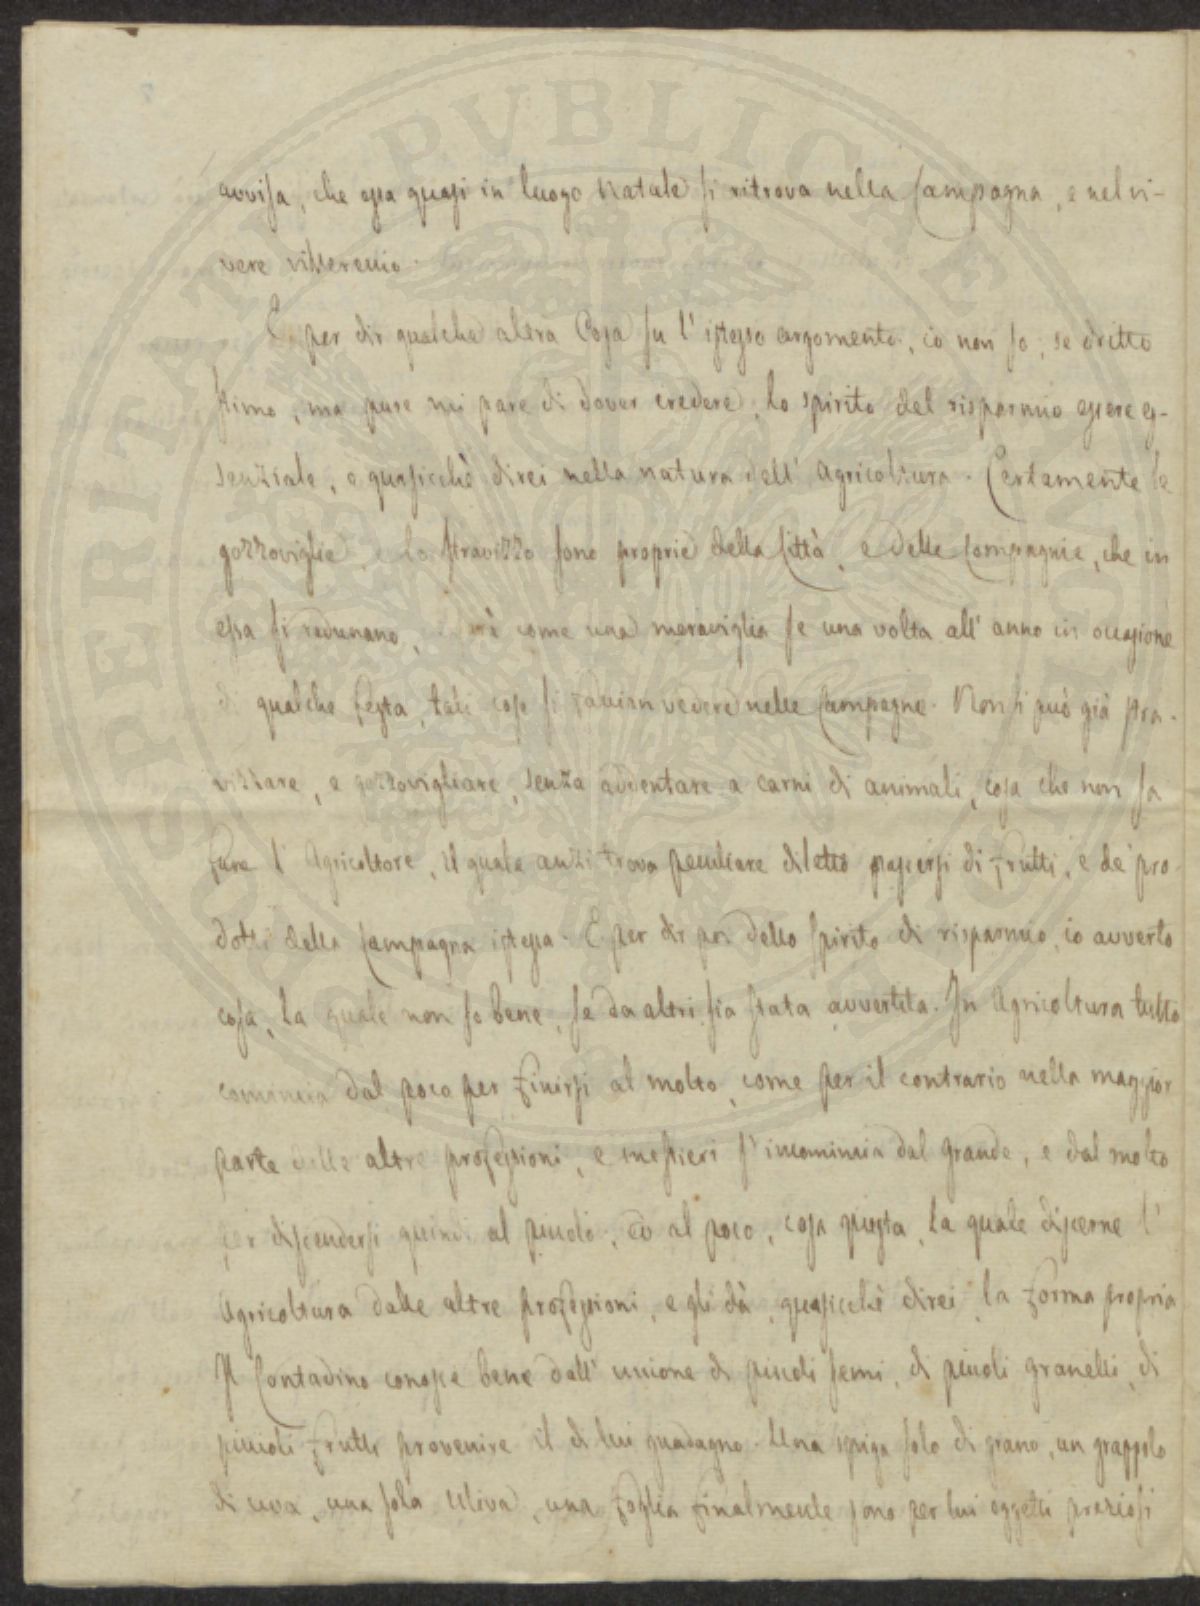 avvisa, che essa quasi in luogo Natale si ritrova nella Campagna, e nel vi-
vere villereccio.
E per dir qualche altra Cosa su l' istesso argomento, io non so, se dritto
stimo, ma pure mi pare di dover credere, lo spirito del risparmio essere es-
senziale, e quasicchè direi nella natura dell' Agricoltura. Certamente le
gozzoviglie e lo stravizzo sono proprie della Città, e delle Compagnie, che in
essa si radunano, come una meraviglia se una volta all' anno in occasione
di qualche festa, tali cose si faccian vedere nelle Campagne. Non si può già stra-
vizzare, e gozzovigliare, senza addentare a carni di animali, cosa che non sa
fare l' Agricoltore, il quale anzi trova peculiare diletto pascersi di frutti, e de' pro-
dotti della Campagna istessa. E per dir poi dello spirito di risparmio, io avverto
cosa, la quale non so bene, se da altri sia stata avvertita. In Agricoltura tutto
comincia dal poco per finirsi al molto, come per il contrario nella maggior
parte delle altre professioni, e mestieri s' incomincia dal grande, e dal molto
per discendersi quindi al piccolo, ed al poco, cosa questa, la quale discerne l'
Agricoltura dalle altre professioni, e gli dà, quasicchè direi, la forma propria
Il Contadino conosce bene dall' unione di piccoli semi, di piccoli granelli, di
piccioli frutti provenire il di lui guadagno. Una spiga solo di grano, un grappolo
di uva, una sola Uliva, una foglia finalmente sono per lui oggetti preziosi